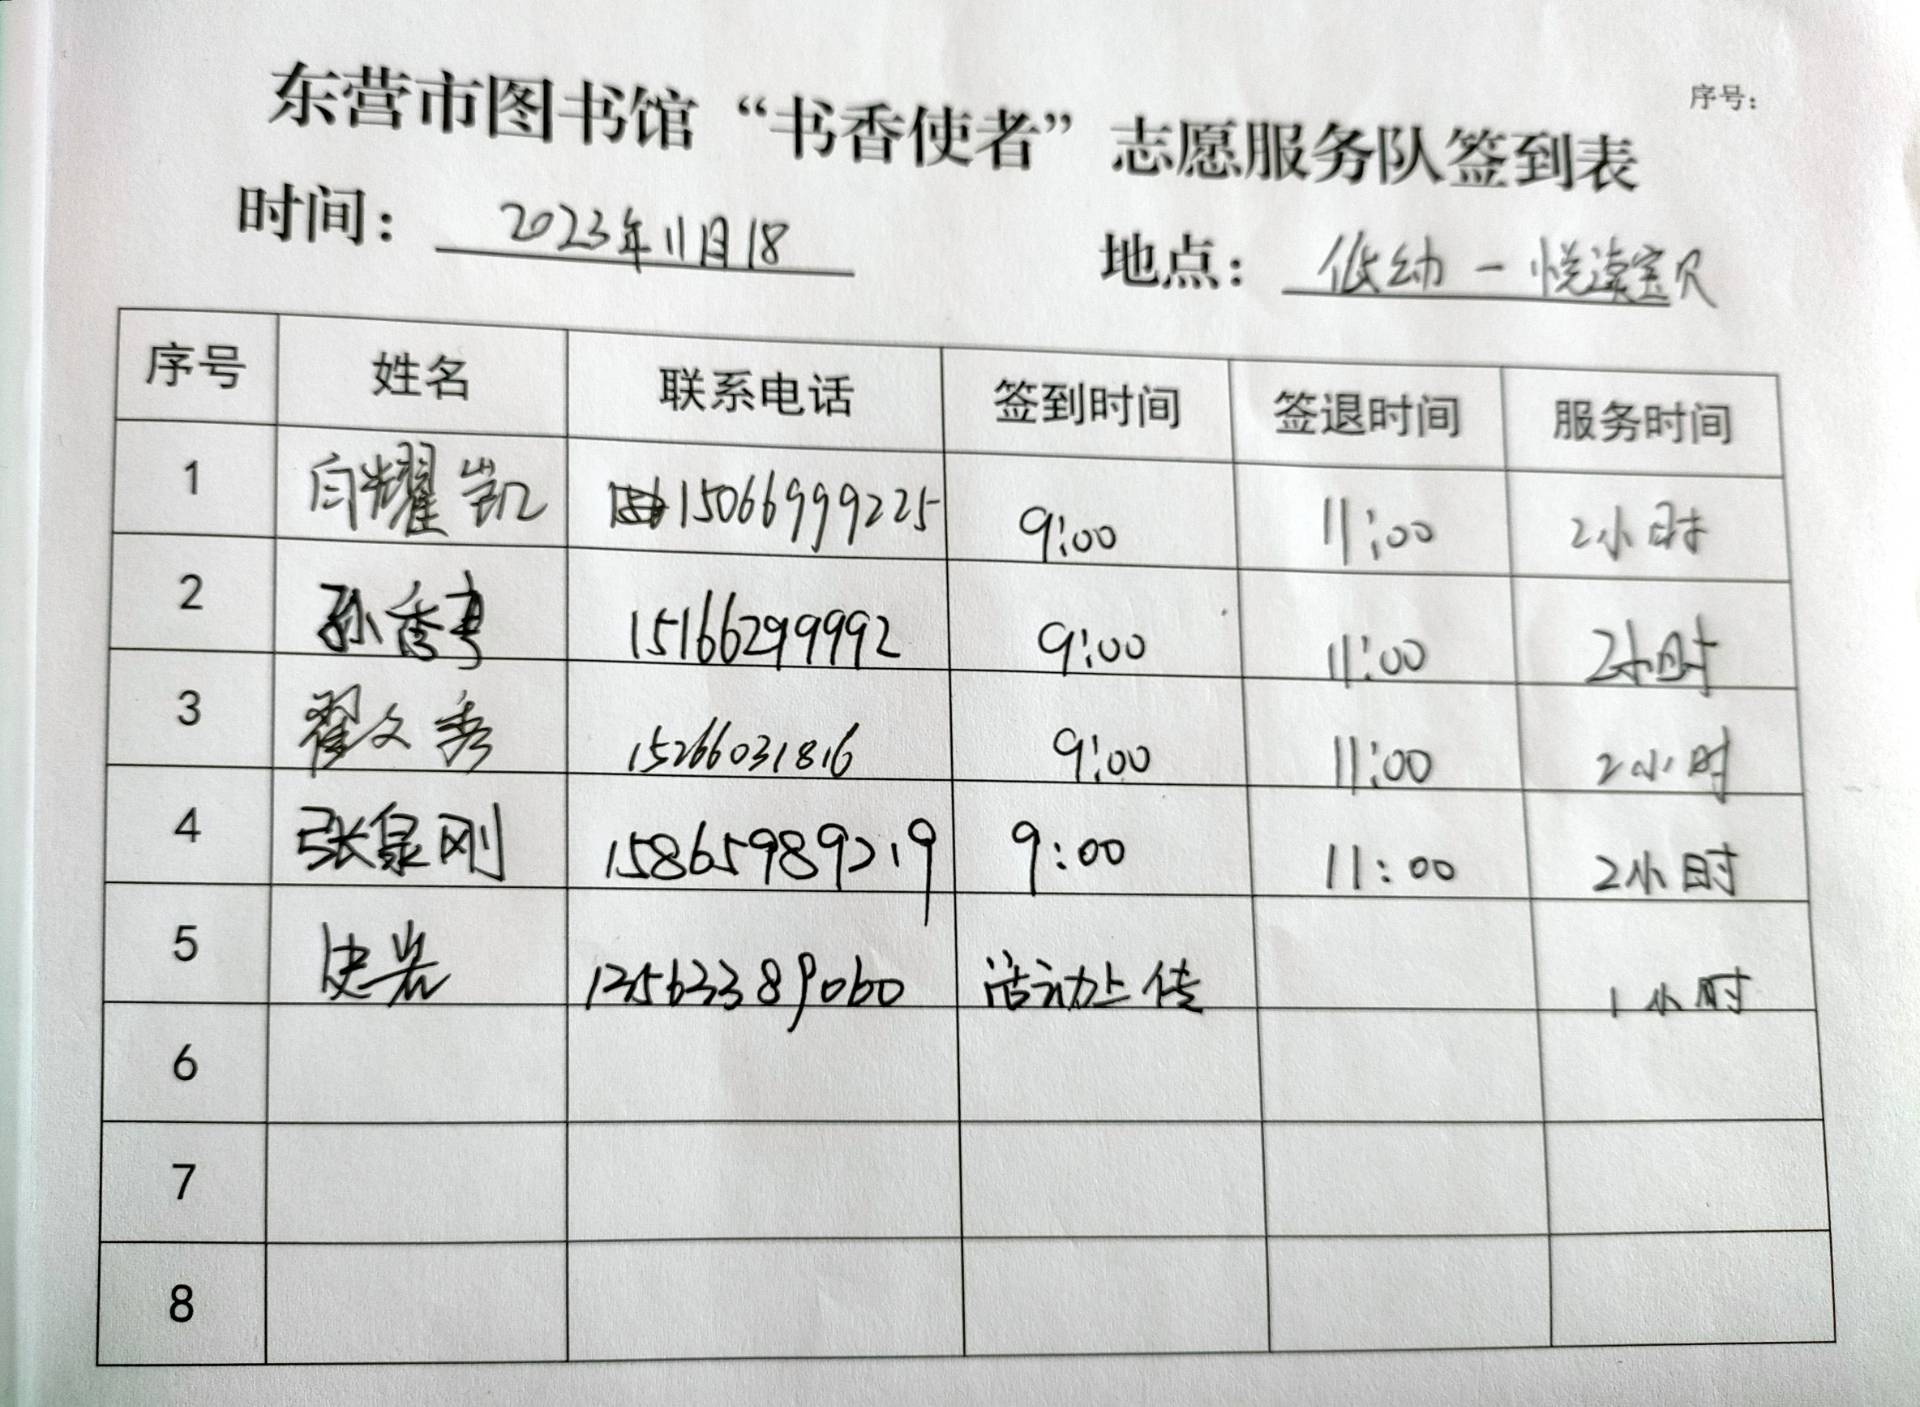 序号：
东营市图书馆“书香使者”志愿服务队签到表
时间： 2023年11月18 地点： 低幼一悦读宝贝
序号 姓名 联系电话 签到时间 签退时间 服务时间
1 白耀凯 15066999225 9:00 11:00 2小时
2 孙香 15166299992 9:00 11:00 2小时
3 翟文秀 15266031816 9:00 11:00 2小时
4 张泉刚 15865989219 9:00 11:00 2小时
5 史岩 13563389060 活动上传 1小时
6
7
8